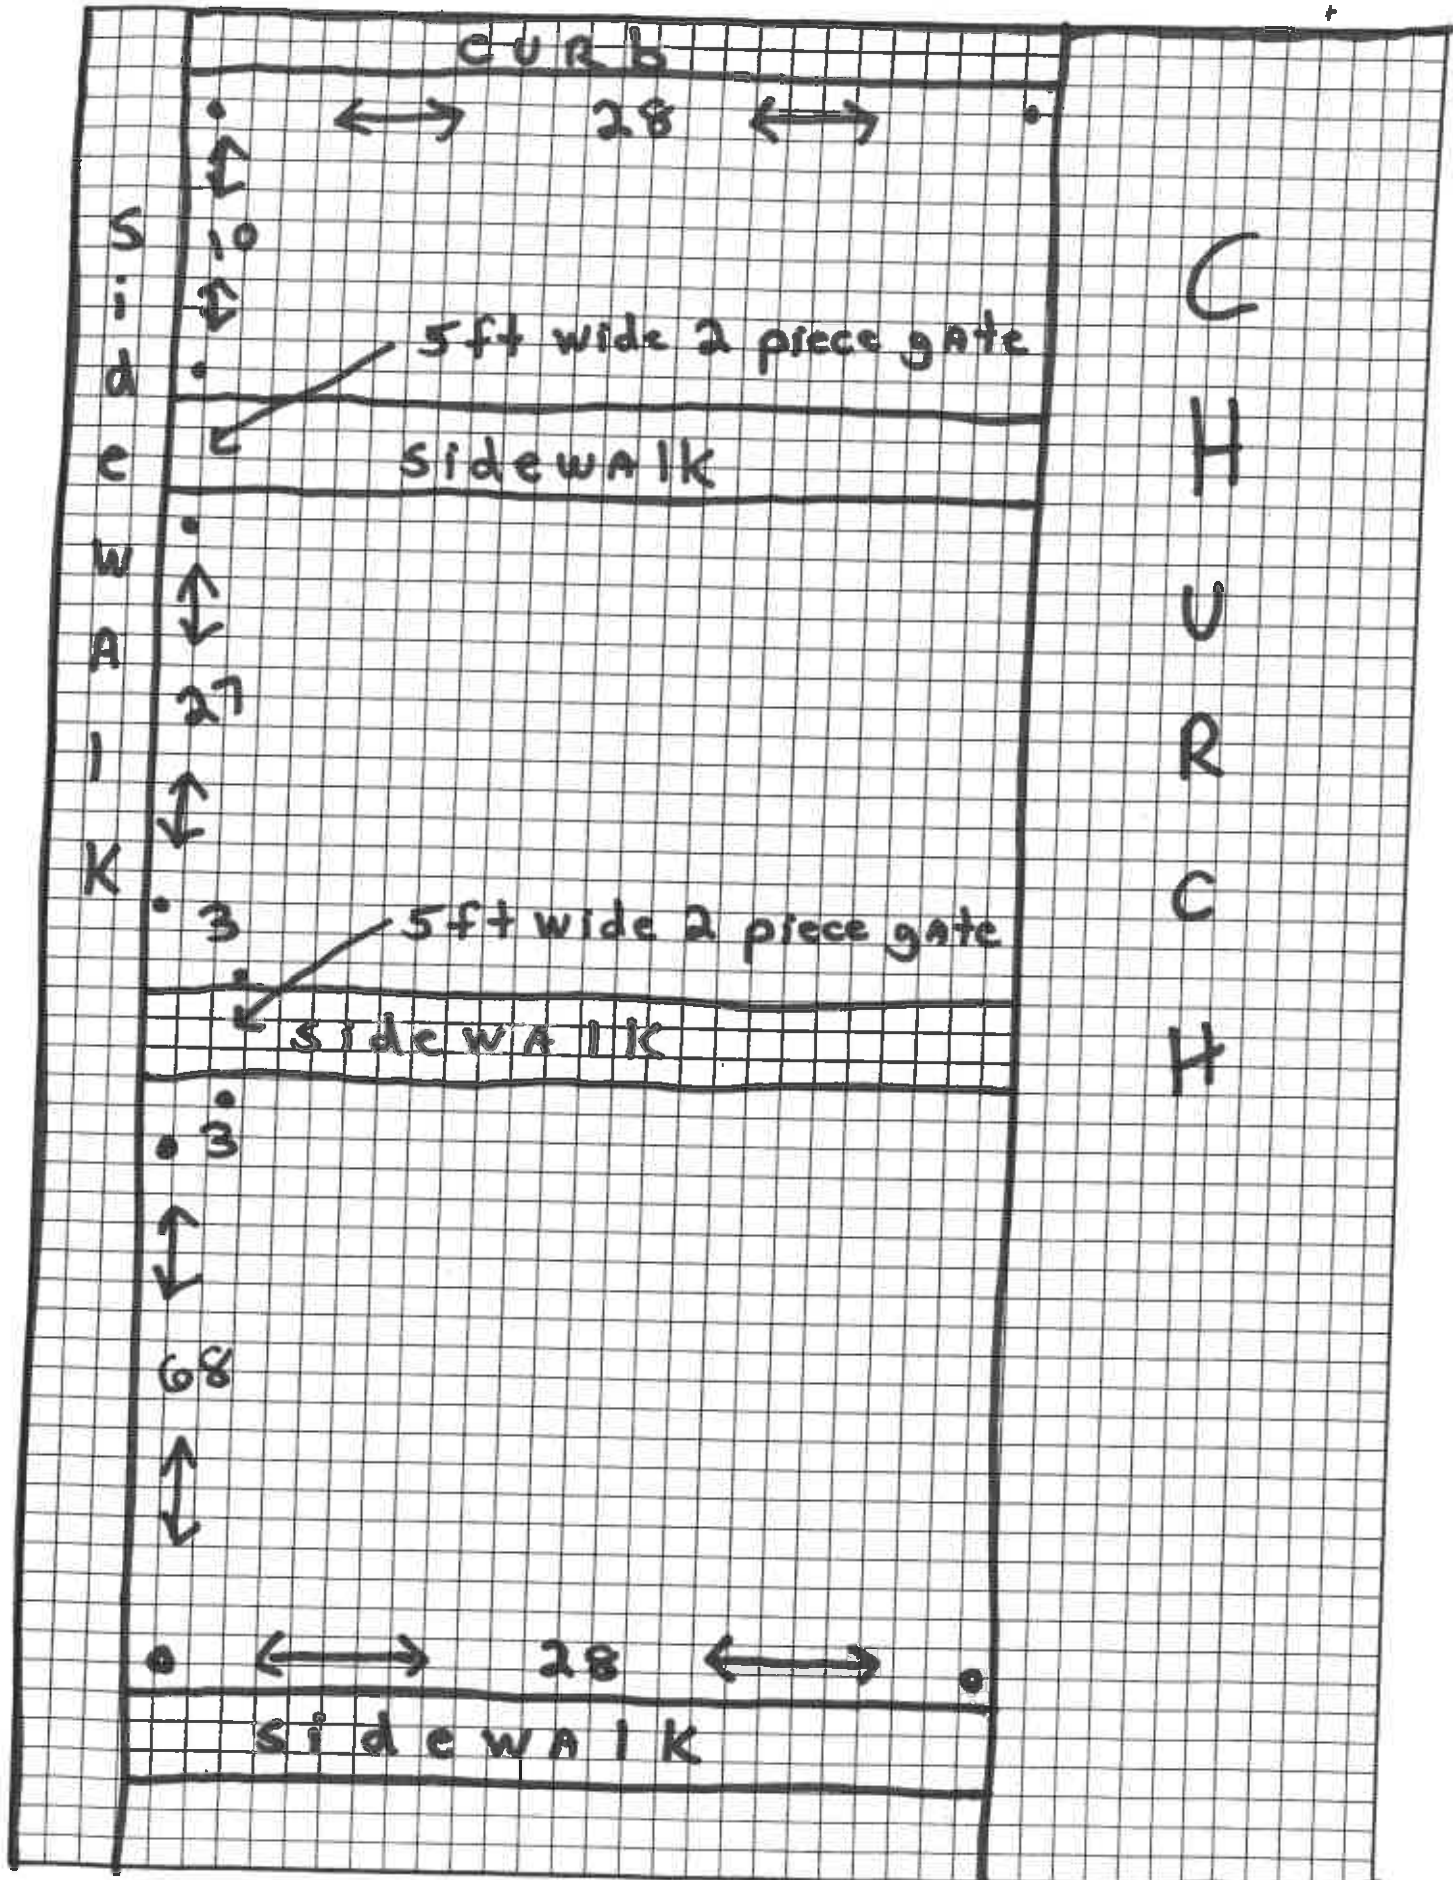 CURb
28
10
5ft wide 2 piece gAte
SidewAlk
SidewAlK
27
3
5ft wide 2 piece gAte
SidewAlK
3
68
28
SidewAlK
CHURCH